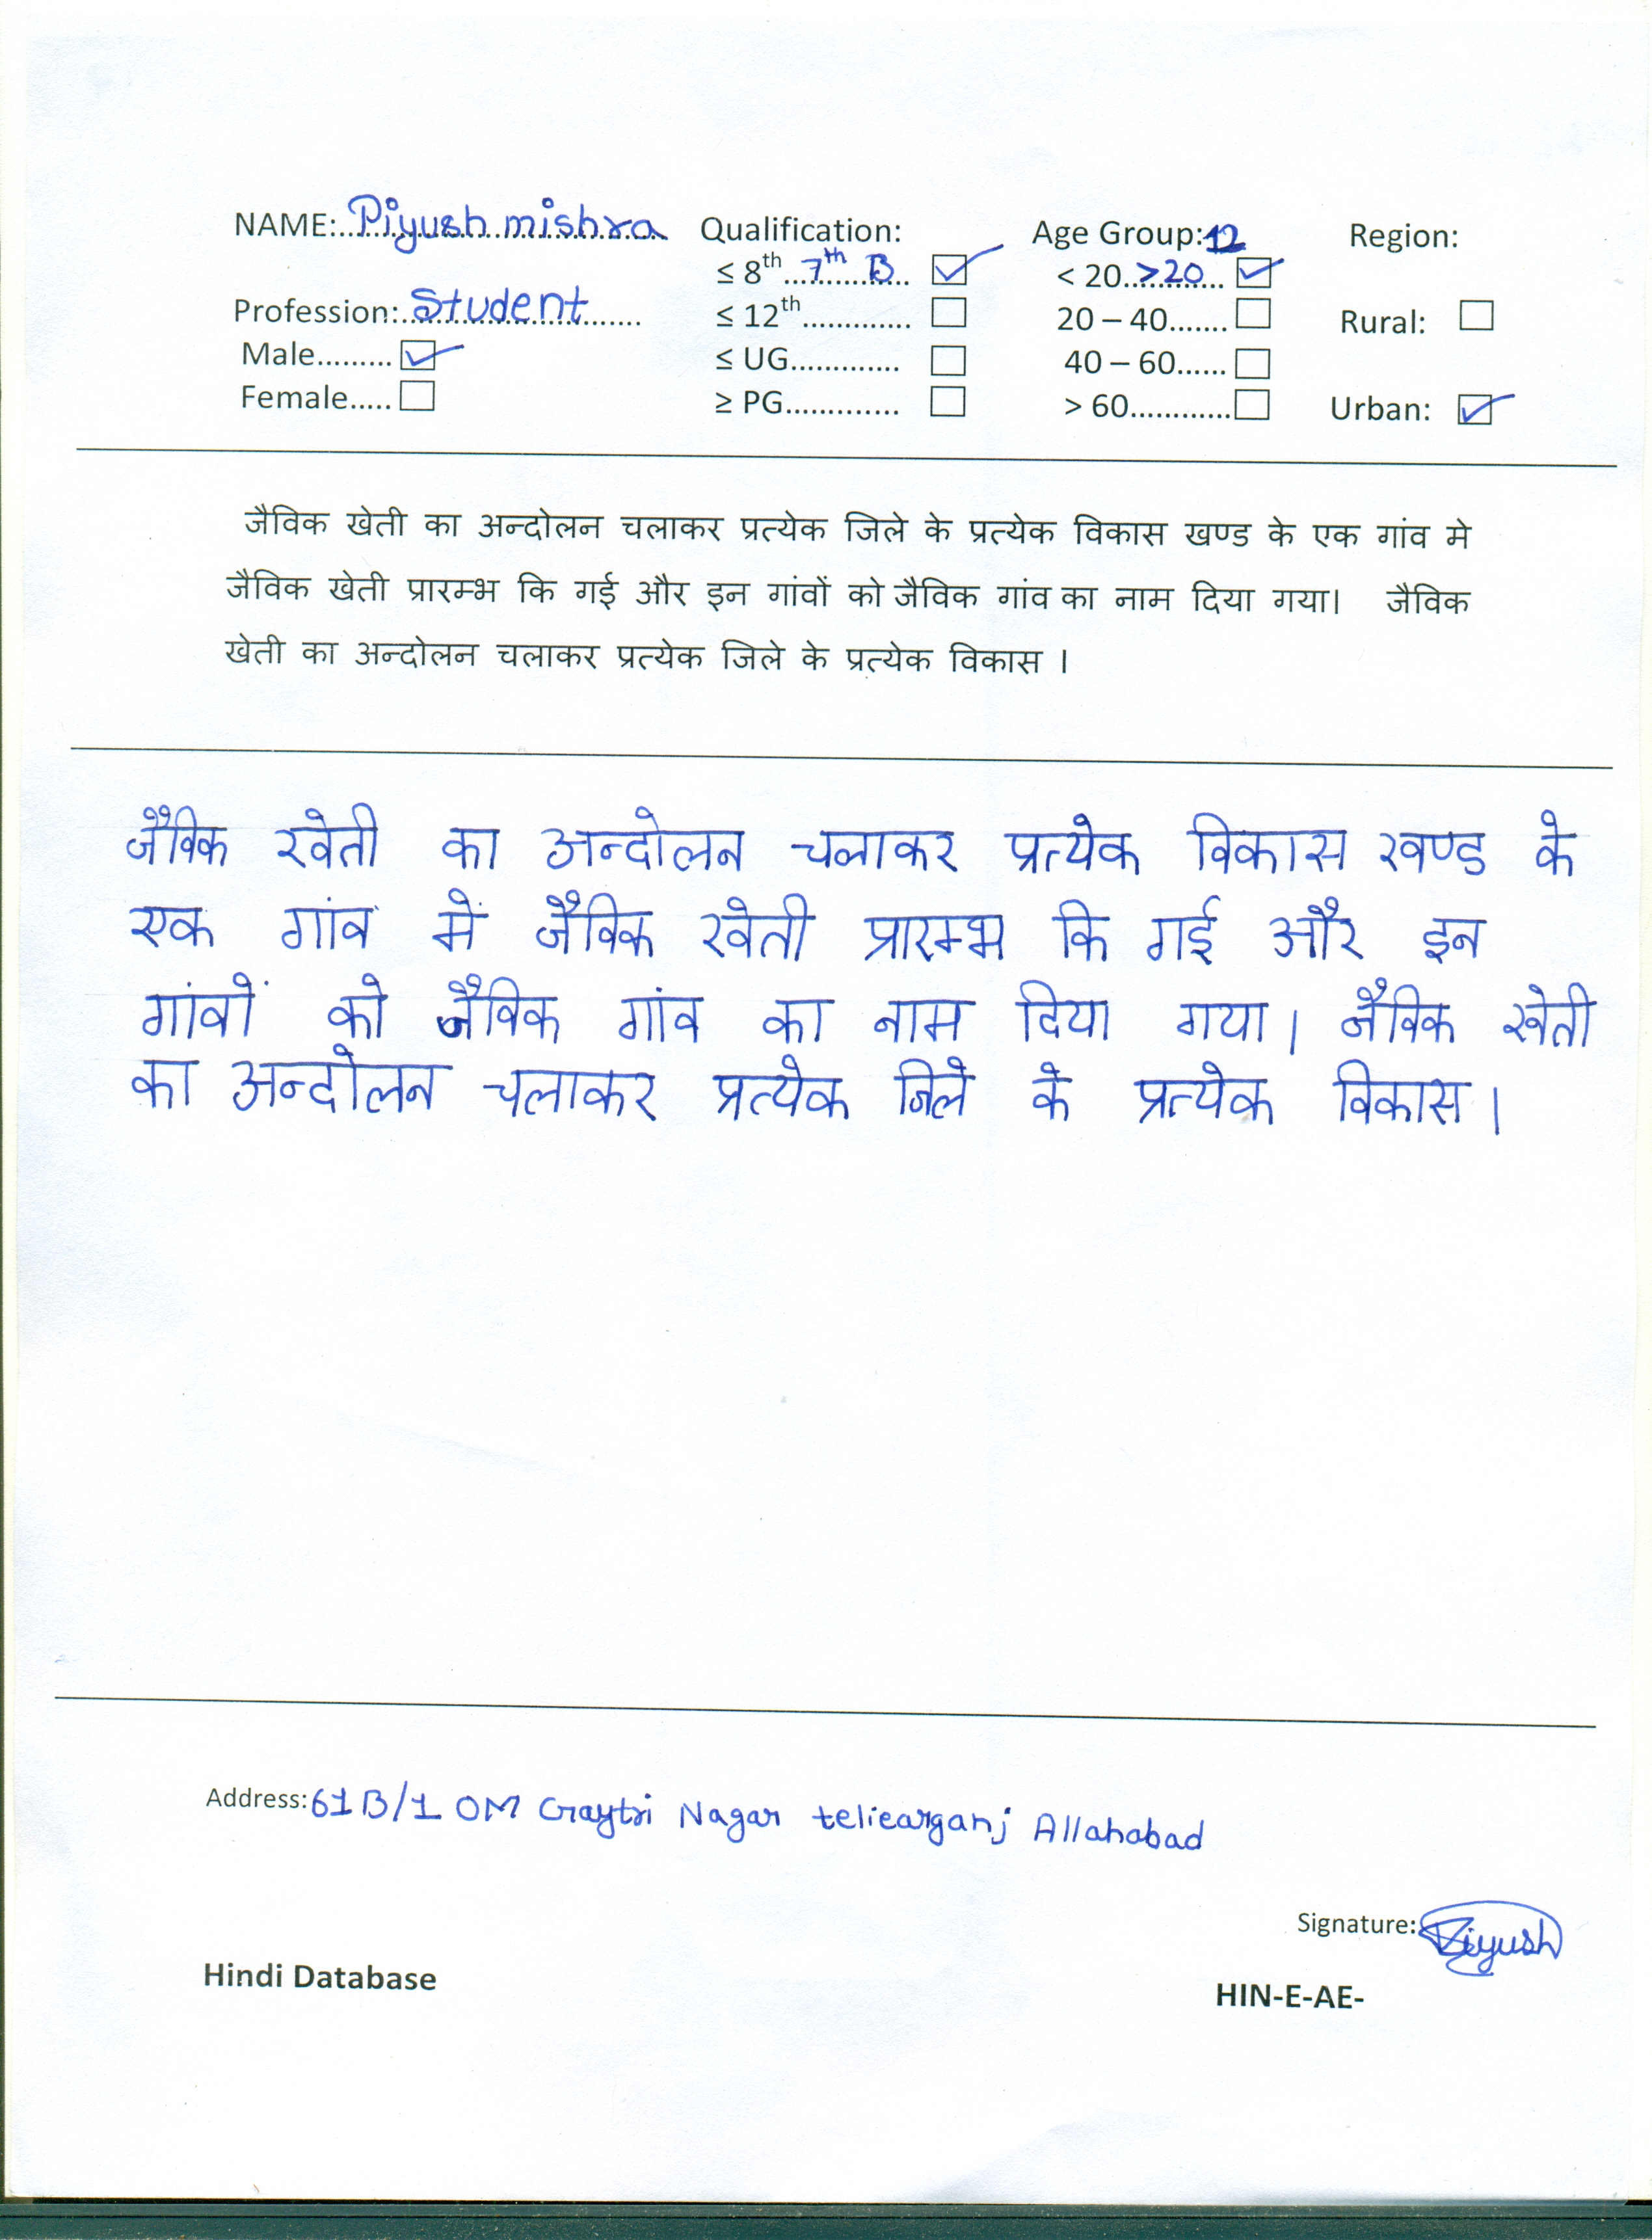 NAME: Piyush mishra Qualification: Age Group: 12 Region:
≤ 8th 7th B < 20 >20
Profession: Student ≤ 12th 20 – 40 Rural:
Male ≤ UG 40 – 60
Female ≥ PG > 60 Urban:
जैविक खेती का अन्दोलन चलाकर प्रत्येक जिले के प्रत्येक विकास खण्ड के एक गांव मे
जैविक खेती प्रारम्भ कि गई और इन गांवों को जैविक गांव का नाम दिया गया। जैविक
खेती का अन्दोलन चलाकर प्रत्येक जिले के प्रत्येक विकास ।
जैविक खेती का अन्दोलन चलाकर प्रत्येक विकास खण्ड के
एक गांव में जैविक खेती प्रारम्भ कि गई और इन
गांवों को जैविक गांव का नाम दिया गया। जैविक खेती
का अन्दोलन चलाकर प्रत्येक जिले के प्रत्येक विकास।
Address: 61B/1 OM Gaytri Nagar teliearganj Allahabad
Signature: Piyush
Hindi Database HIN-E-AE-